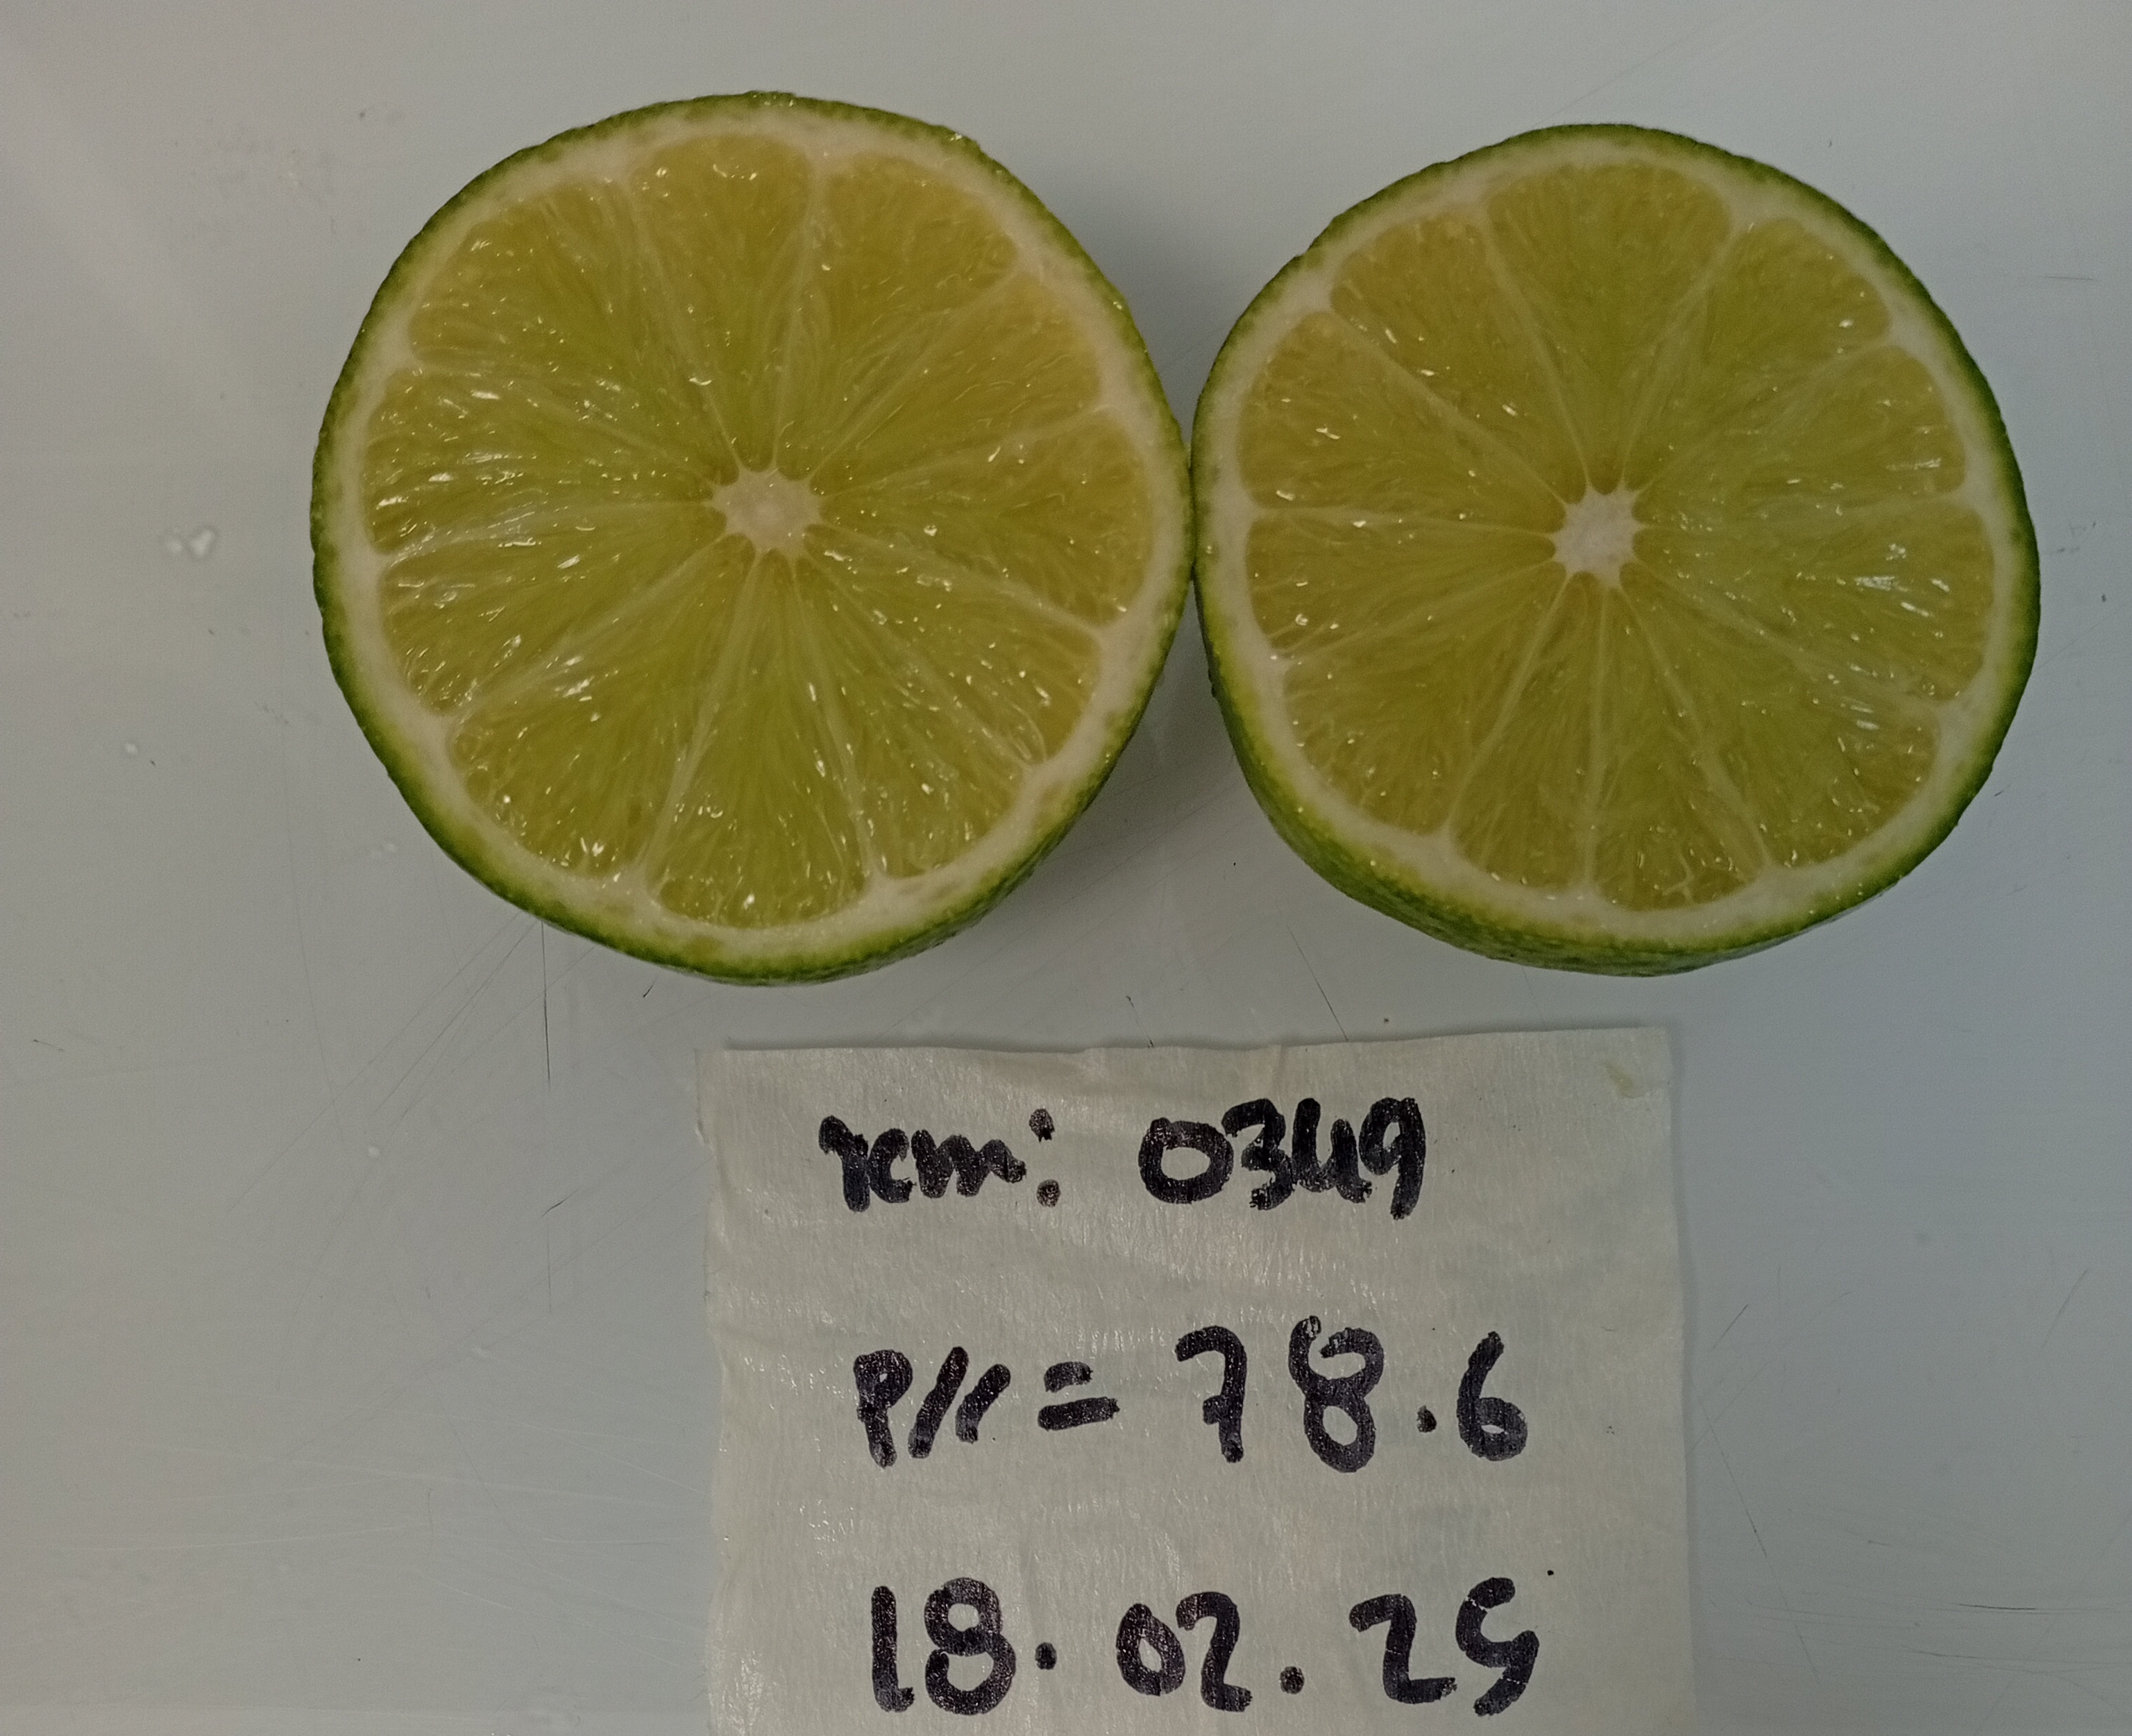 rcm: 0349
P/r = 78.6
18.02.25